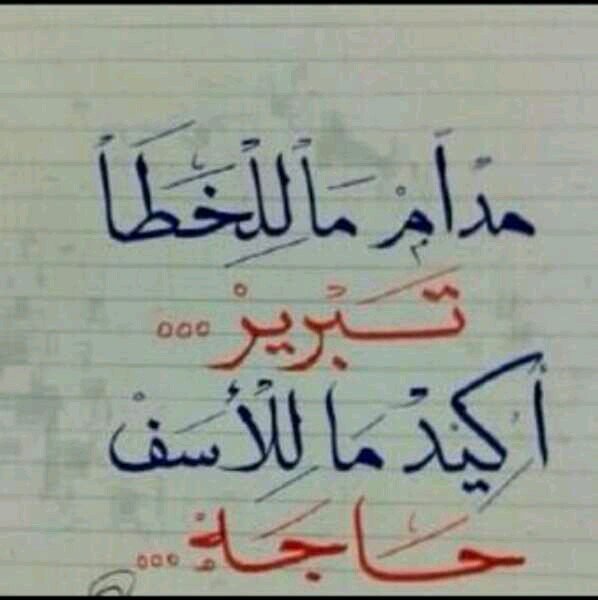 مدام ما للخطأ
تبرير ...
أكيد ما للأسف
حاجة ...